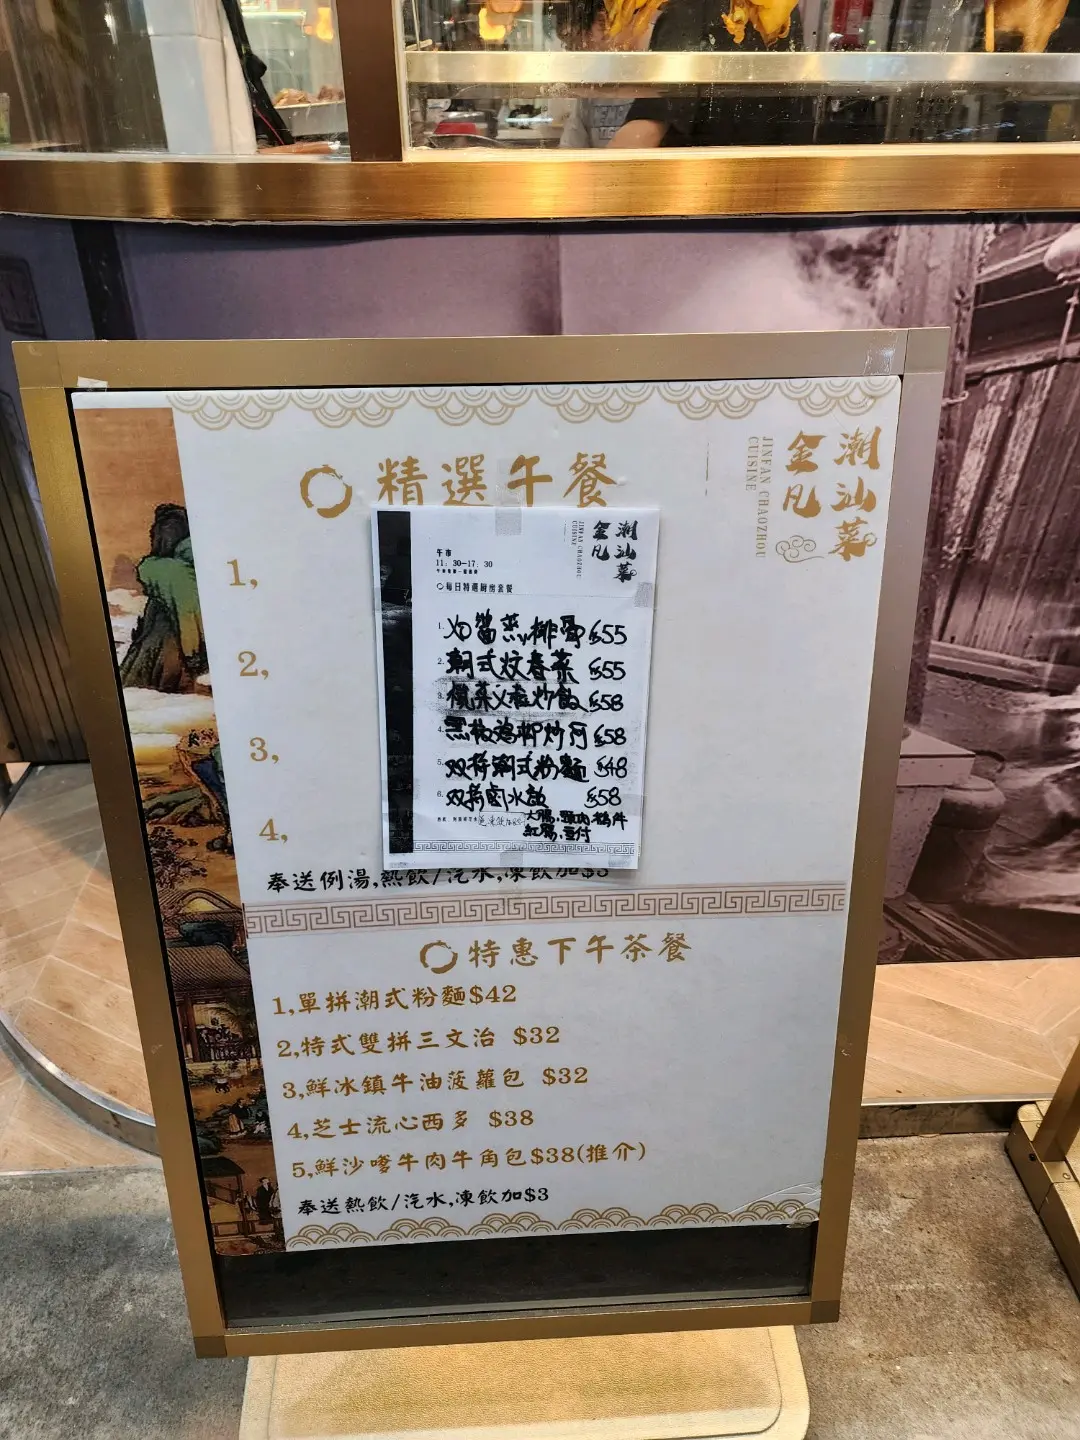 精選午餐
潮汕菜
金凡
JINFAN CHAOZHOU
CUISINE
潮汕菜
金凡
JINFAN CHAOZHOU
CUISINE
午市
11:30-17:30
每日特選厨房套餐
1. 排骨 $55
2. 潮式炆春菜 $55
3. 欖菜义燒炒飯 $58
4. 黑椒鸡柳炒河 $58
5. 双拼潮式粉麵 $48
6. 双拼鹵水飯 $58
大腸,頸肉,鴨件
紅腸,豆付
1,
2,
3,
4,
奉送例湯,熱飲/汽水,凍飲加$3
特惠下午茶餐
1,單拼潮式粉麵$42
2,特式雙拼三文治 $32
3,鮮冰鎮牛油菠蘿包 $32
4,芝士流心西多 $38
5,鮮沙嗲牛肉牛角包$38(推介)
奉送熱飲/汽水,凍飲加$3